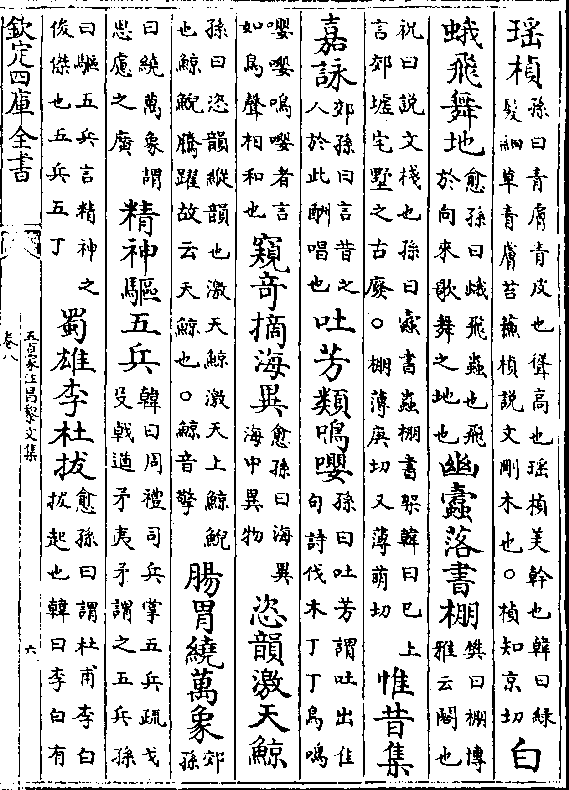 瑶楨孫曰青膚青皮也聳高也瑶楨美幹也韓曰緑髮細草青膚苔蘚楨説文剛木也○楨知京切白
蛾飛舞地愈孫曰蛾飛蟲也飛於向來歌舞之地也幽蠹落書棚樊曰棚博雅云閣也
祝曰説文棧也孫曰蠹書蟲棚書架韓曰巳上言郊墟宅墅之古廢○棚薄庚切又薄萌切惟昔集
嘉詠郊孫曰言昔之人於此酬唱也吐芳類鳴嚶孫曰吐芳謂吐出佳句詩伐木丁丁鳥鳴
嚶嚶鳴嚶者言如鳥聲相和也窺奇摘海異愈孫曰海異海中異物恣韻激天鯨
孫曰恣韻縱韻也激天鯨激天上鯨鯢也鯨鯢騰躍故云天鯨也○鯨音擎腸胃繞萬象郊孫
曰繞萬象謂思慮之廣精神驅五兵韓曰周禮司兵掌五兵疏戈殳戟酋矛夷矛謂之五兵孫
曰驅五兵言精神之俊傑也五兵五丁蜀雄李杜拔愈孫曰謂杜甫李白拔起也韓曰李白有
欽定四庫全書
五百家注昌黎文集
卷八
六